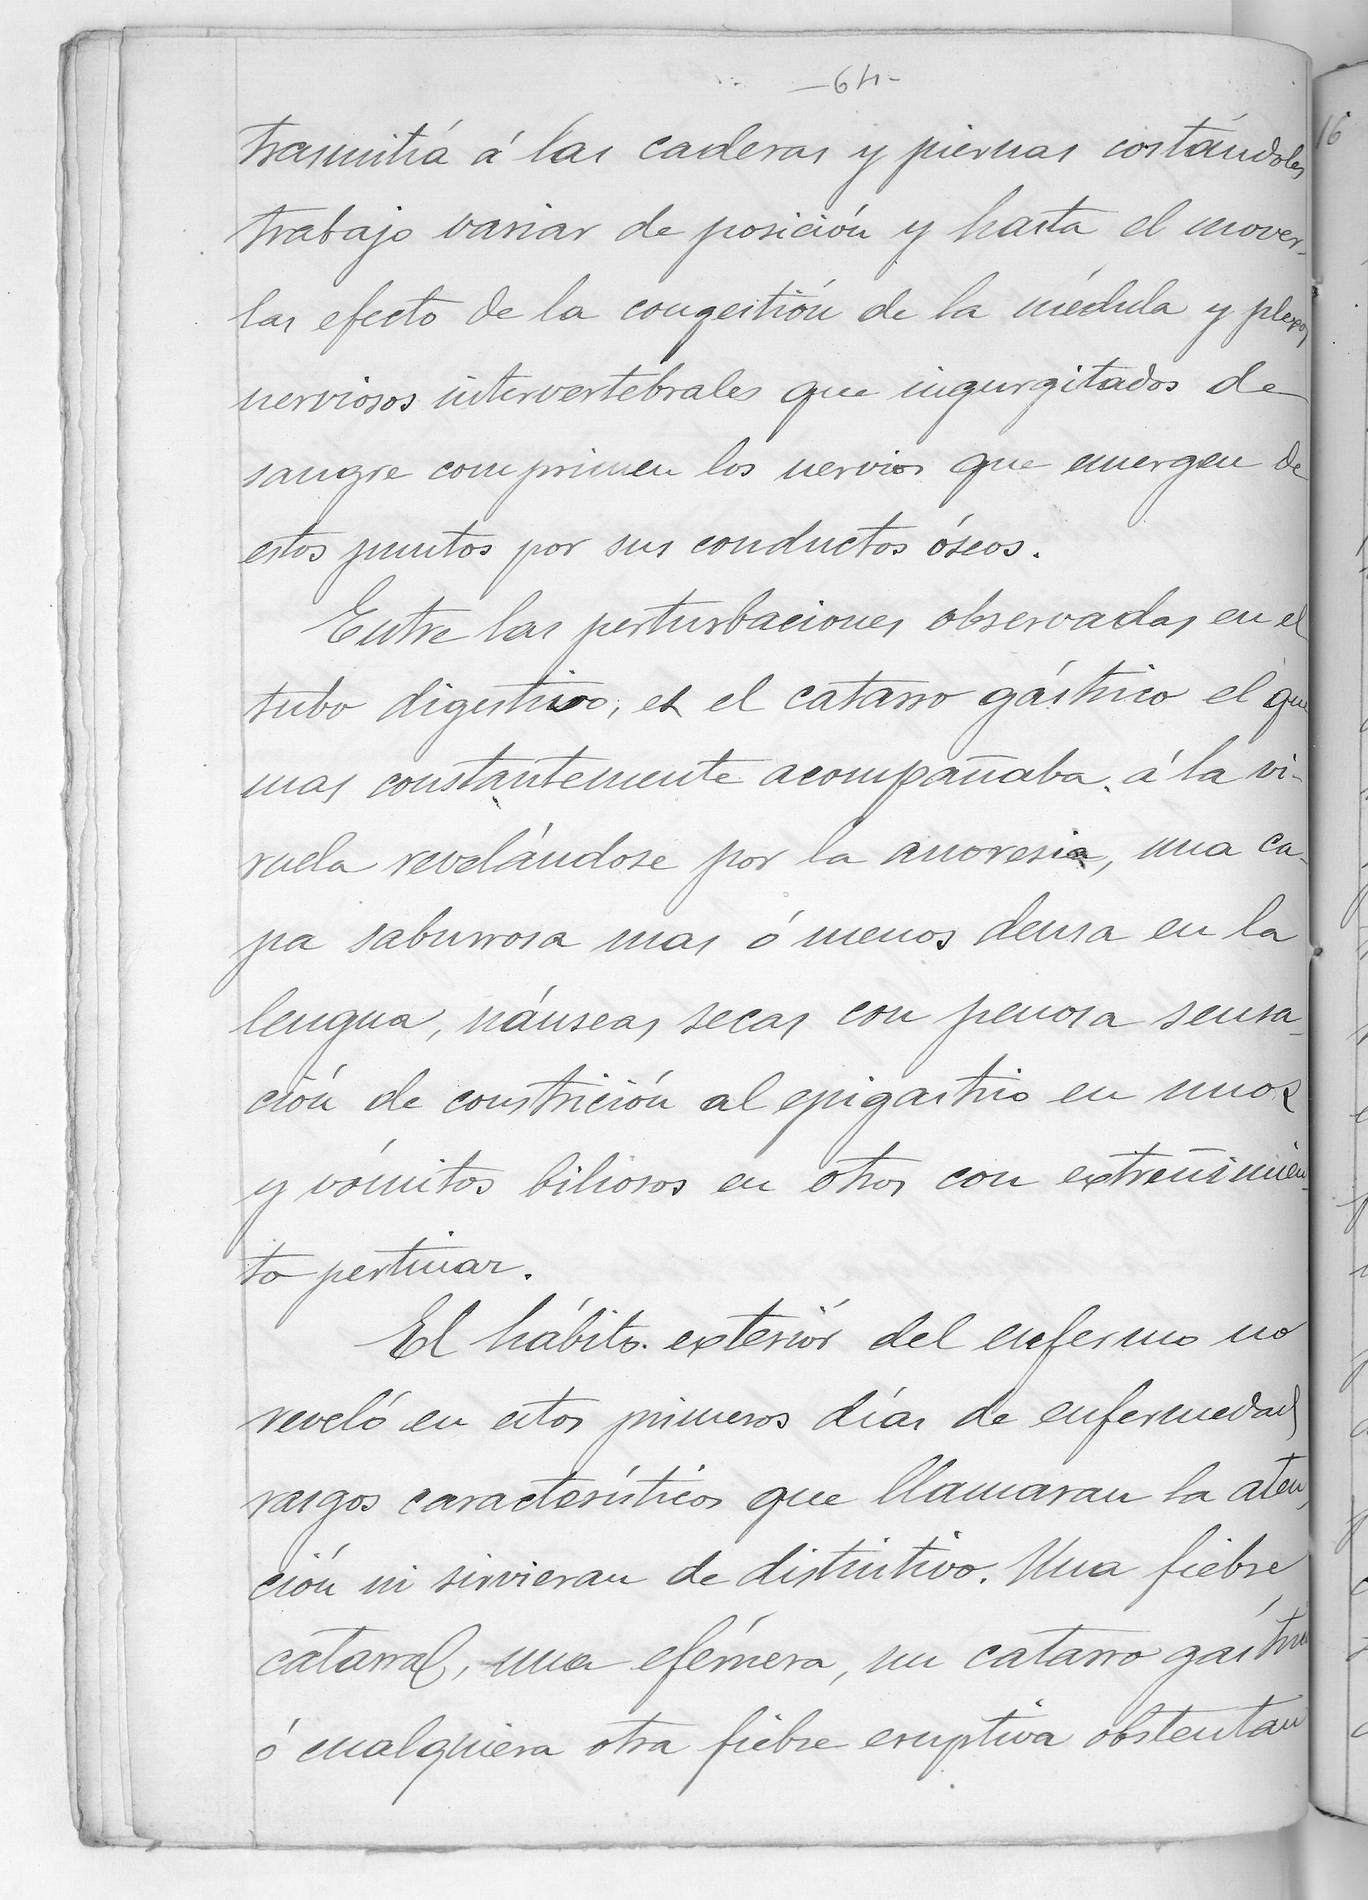 -64-
trasmitiá á las caderas y piernas costándoles
trabajo variar de posición y hasta el mover-
las efecto de la congestión de la médula y plexos
nerviosos intervertebrales que ingurgitados de
sangre comprimen los nervios que emergen de
estos puntos por sus conductos óseos.
Entre las perturbaciones observadas en el
tubo digestivo, es el catarro gástrico el que
mas constantemente acompañaba á la vi-
ruela revelándose por la anoresia, una ca-
pa saburrosa mas ó menos densa en la
lengua, náuseas secas con penosa sensa-
ción de constrición al epigastrio en unos
y vómitos biliosos en otros con extreñimien-
to pertinaz.
El hábito exteriór del enfermo no
reveló en estos primeros días de enfermedad
rasgos característicos que llamaran la aten-
ción ni sirvieran de distintivo. Una fiebre
catarral, una efémera, un catarro gástrico
ó cualquiera otra fiebre eruptiva obstentan
16